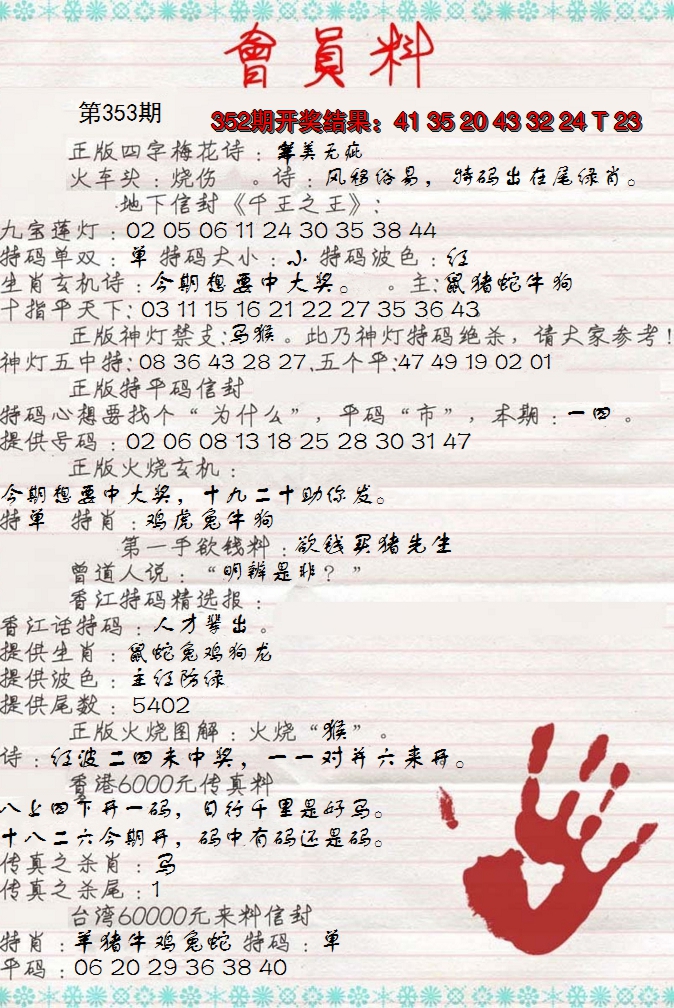 會員料
第353期
352期开奖结果：41 35 20 43 32 24 T 23
正版四字梅花诗：美无疵
火车头：烧伤 。诗：风移俗易，特码出在尾绿肖。
地下信封《千王之王》：
九宝莲灯：02 05 06 11 24 30 35 38 44
特码单双：单 特码大小：小 特码波色：红
生肖玄机诗：今期想要中大奖。 。主：鼠猪蛇牛狗
十指平天下：03 11 15 16 21 22 27 35 36 43
正版神灯禁支：马猴。此乃神灯特码绝杀，请大家参考！
神灯五中特：08 36 43 28 27.五个平：47 49 19 02 01
正版特平码信封
特码心想要找个“为什么”，平码“市”，本期：一四。
提供号码：02 06 08 13 18 25 28 30 31 47
正版火烧玄机：
今期想要中大奖，十九二十助你发。
特单 特肖：鸡虎兔牛狗
第一手欲钱料：欲钱买猪先生
曾道人说：“明辨是非？”
香江特码精选报：
香江话特码：人才辈出。
提供生肖：鼠蛇兔鸡狗龙
提供波色：主红防绿
提供尾数：5402
正版火烧图解：火烧“猴”。
诗：红波二四未中奖，一一对并六来开。
香港6000元传真料
八上四下开一码，日行千里是好马。
十八二六今期开，码中有码还是码。
传真之杀肖：马
传真之杀尾：1
台湾60000元来料信封
特肖：羊猪牛鸡兔蛇 特码：单
平码：06 20 29 36 38 40